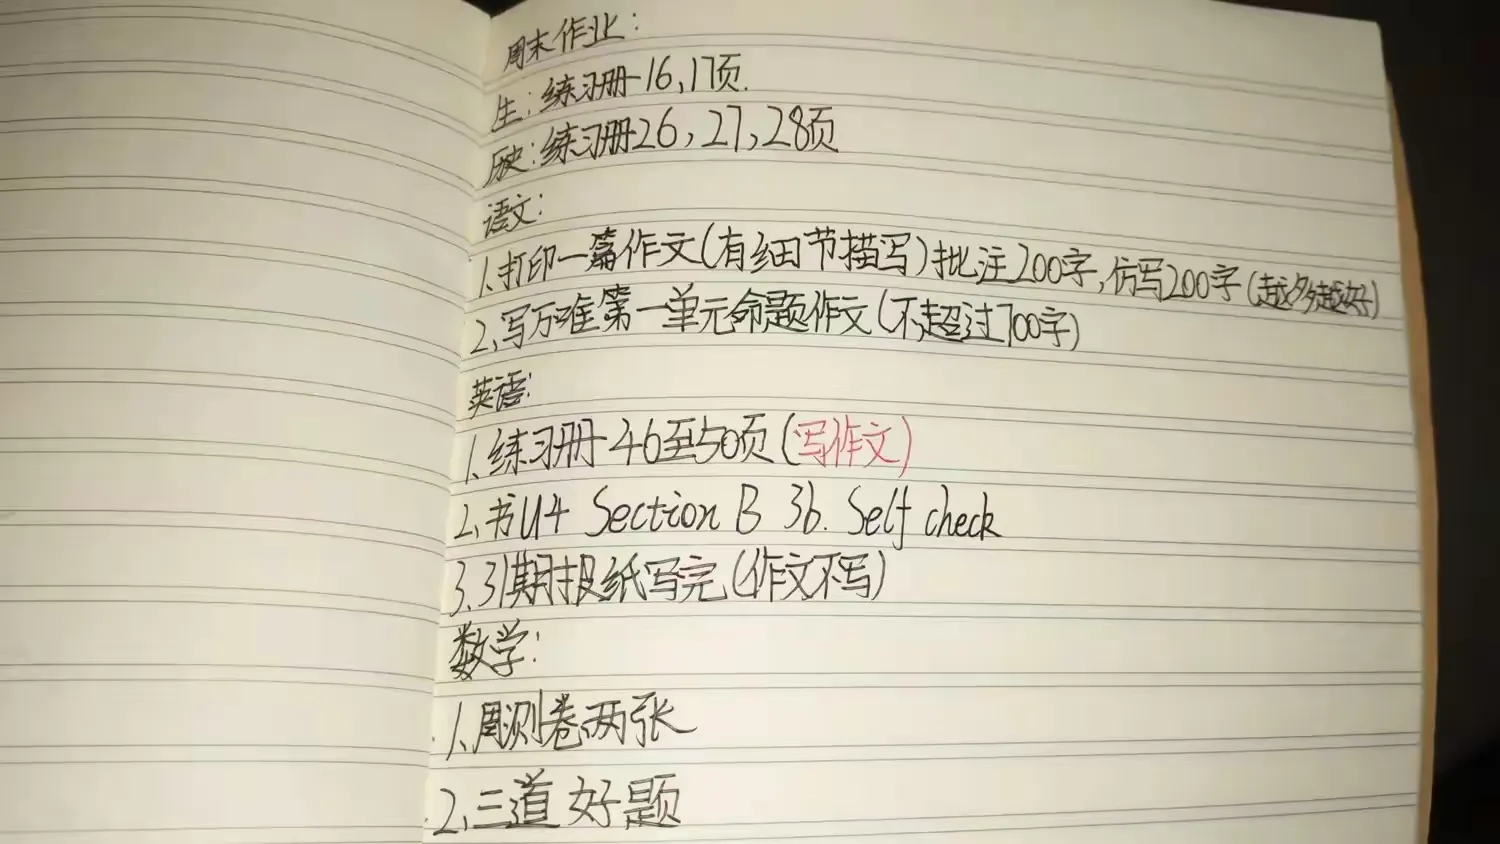 周末作业:
生:练习册16,17页.
历史:练习册26,27,28页
语文:
1.打印一篇作文(有细节描写)批注200字,仿写200字(越多越好)
2.写万唯第一单元命题作文(不超过700字)
英语:
1.练习册46至50页(写作文)
2.书U4 Section B 3b. Self check
3.31期报纸写完(作文不写)
数学:
1.周测卷两张
2.三道好题